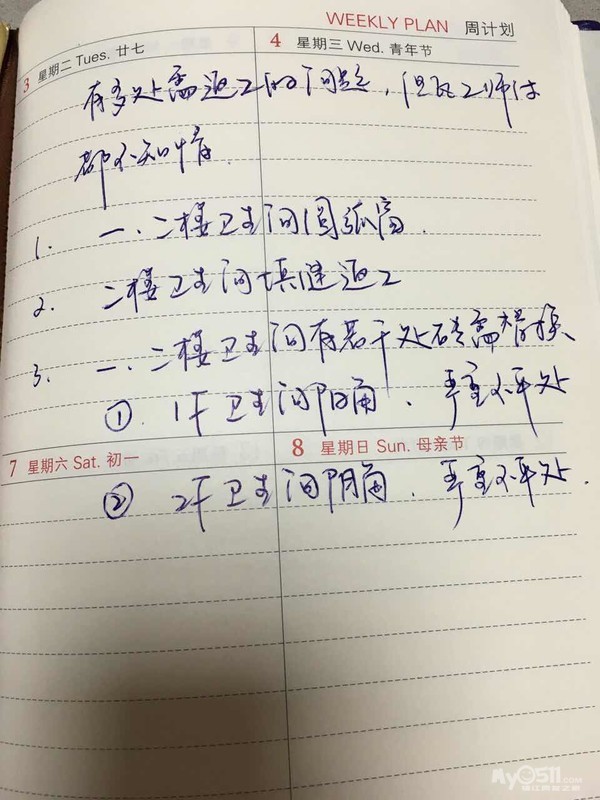 WEEKLY PLAN 周计划
3 星期二 Tues. 廿七
4 星期三 Wed. 青年节
有多处需返工的问题,但瓦工师付
都不知情.
1. 一.二楼卫生间圆弧窗.
2. 二楼卫生间填缝返工
3. 一.二楼卫生间有若干处砖需替换
① 1F卫生间阳角.严重不平处
7 星期六 Sat. 初一
8 星期日 Sun. 母亲节
② 2F卫生间阴角.严重不平处.
My0511.com